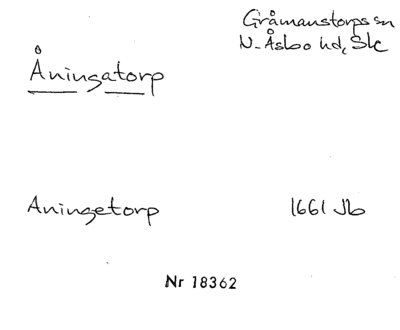 Gråmanstorps sn
N. Åsbo hd, Sk
Åningatorp
Aningetorp 1661 Jb
Nr 18362